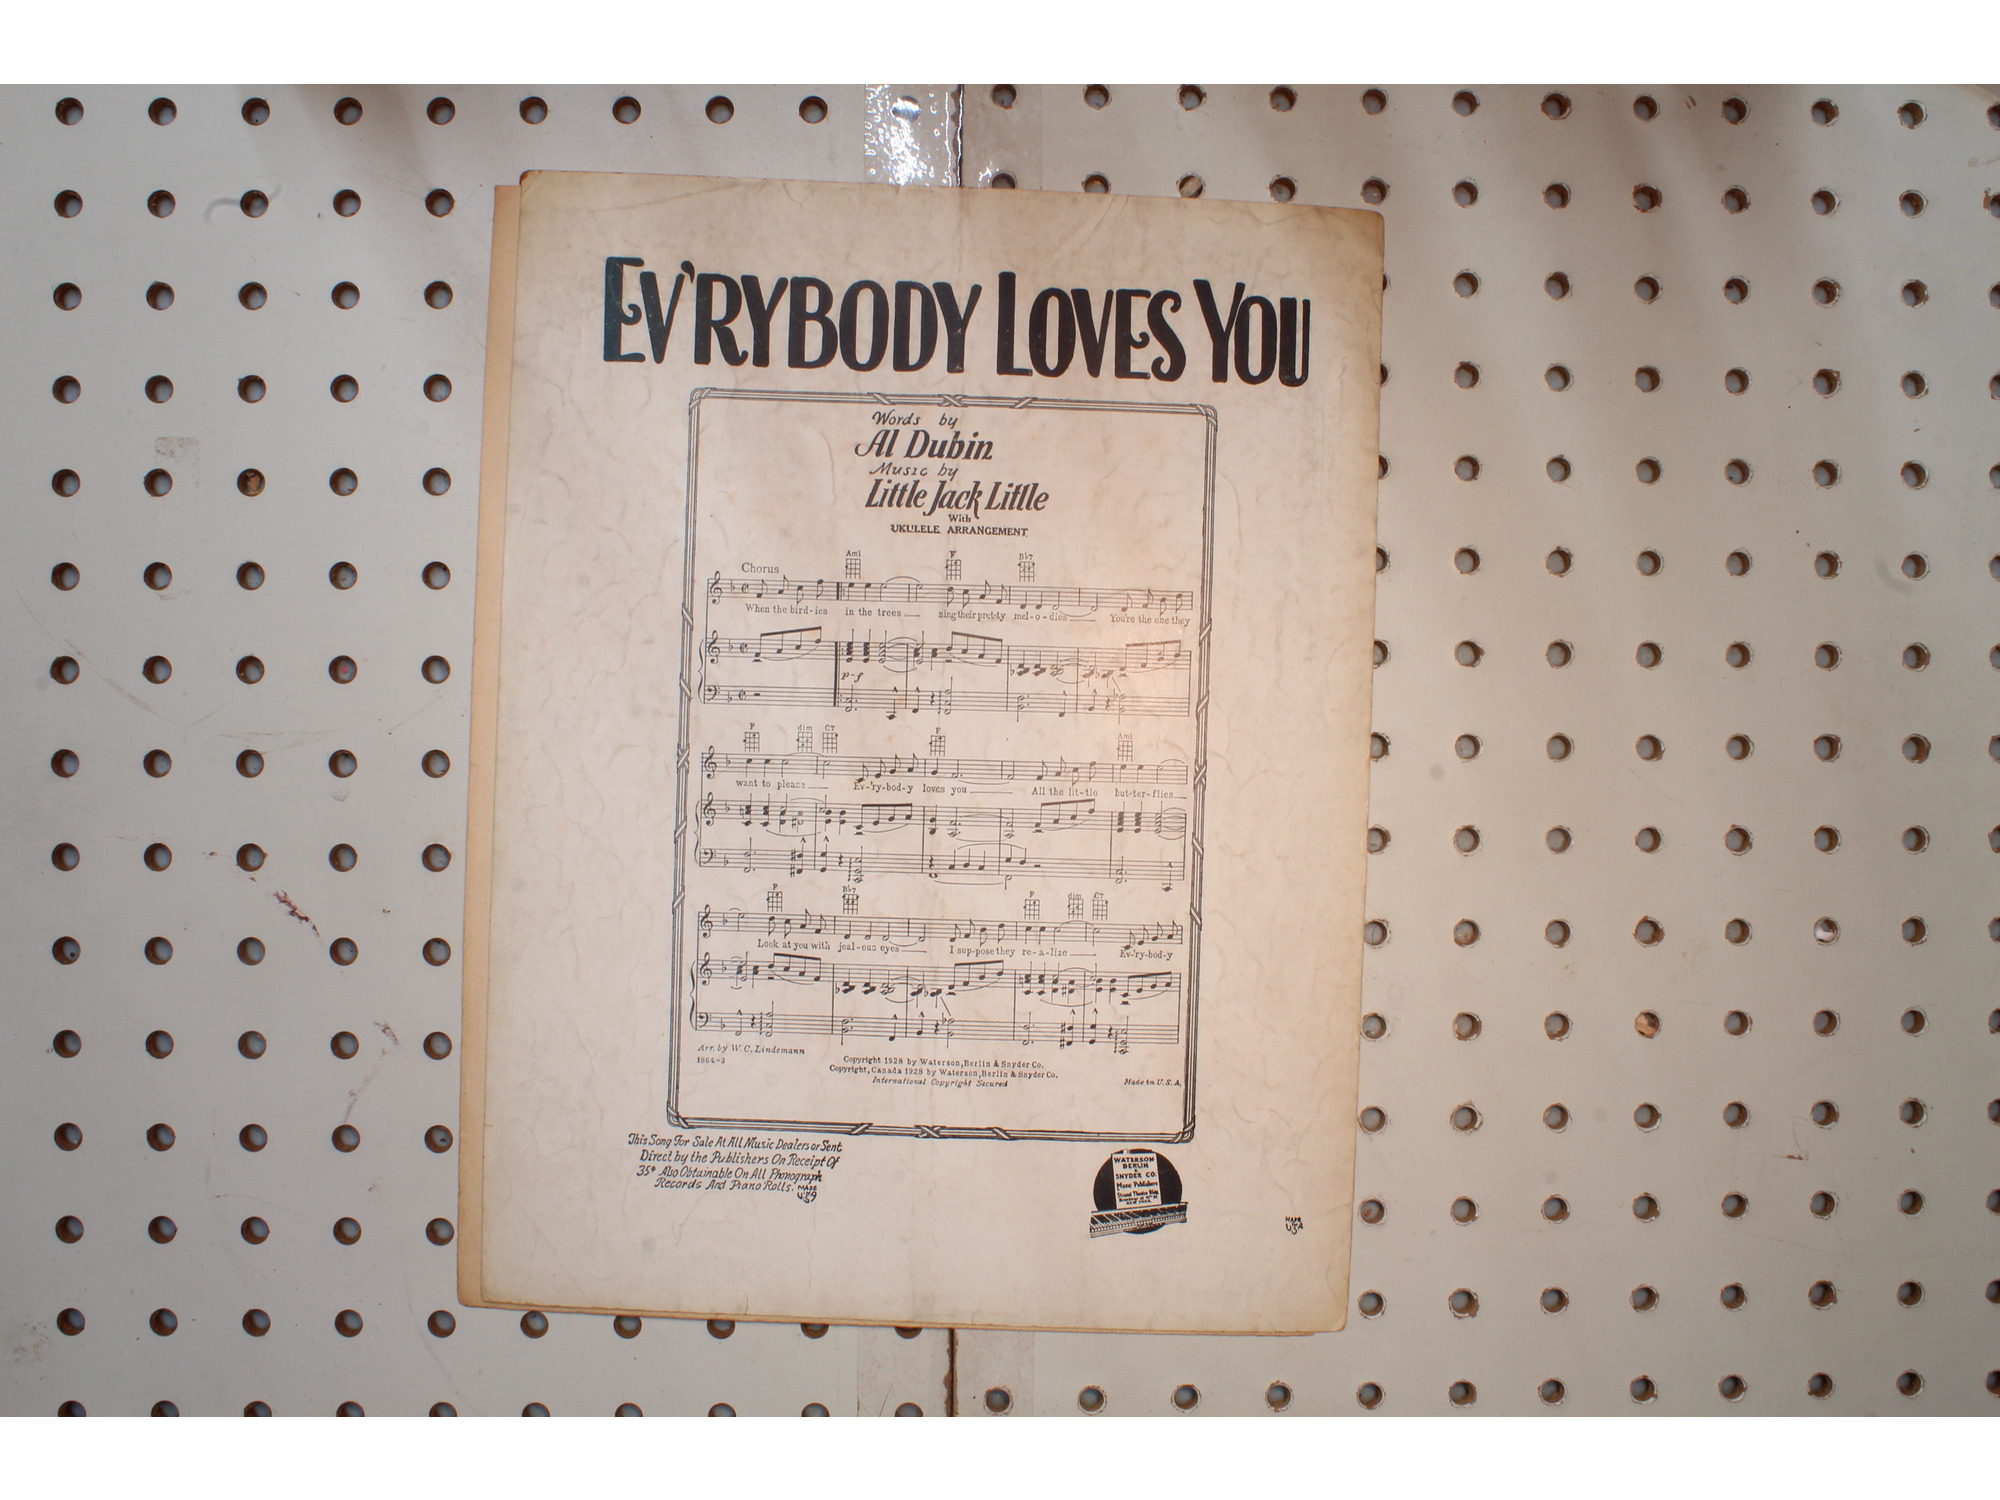 EV'RYBODY LOVES YOU
Words by
Al Dubin
Music by
Little Jack Little
With
UKULELE ARRANGEMENT
Chorus
Ami F Bb7
When the bird-ies in the trees sing their pret-ty mel-o-dies You're the one they
p-f
F dim C7 F Ami
want to please Ev-'ry-bod-y loves you All the lit-tle but-ter-flies
F Bb7 F dim C7
Look at you with jeal-ous eyes I sup-pose they re-a-lize Ev-'ry-bod-y
Arr. by W. C. Lindemann
1864-3
Copyright 1928 by Waterson, Berlin & Snyder Co.
Copyright, Canada 1928 by Waterson, Berlin & Snyder Co.
International Copyright Secured
Made in U. S. A.
This Song For Sale At All Music Dealers or Sent
Direct by the Publishers On Receipt Of
35¢ Also Obtainable On All Phonograph
Records And Piano Rolls. MADE IN USA
WATERSON
BERLIN
&
SNYDER CO.
Music Publishers
Strand Theatre Bldg.
NEW YORK
MADE
IN
USA